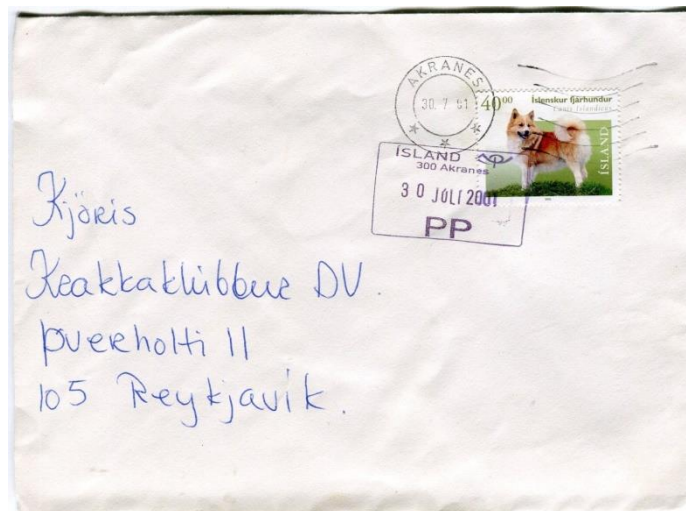 AKRANES
30. 7. 01
40⁰⁰ Íslenskur fjárhundur
Canis Islandicus
ÍSLAND
ÍSLAND
300 Akranes
30 JÚLÍ 2001
PP
Kjörís
Krakkaklúbbur DV.
Þverholti 11
105 Reykjavík.